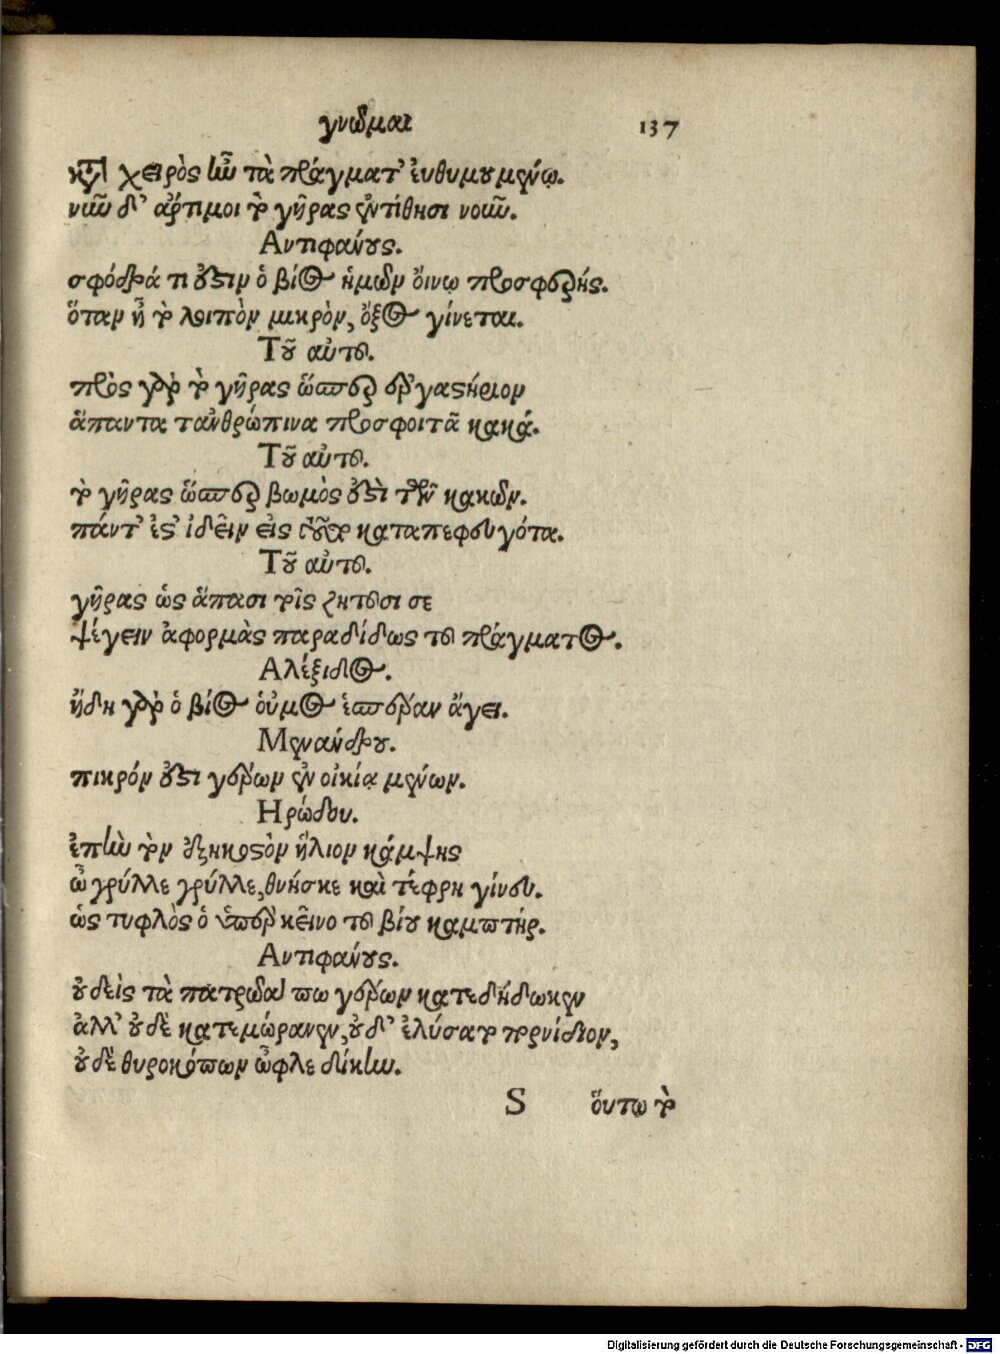 γνῶμαι 137
κατὰ χειρὸς ἦν τὰ πράγματ' ἐνθυμουμένῳ.
νῦν δ' ἄρτι μοι τὸ γῆρας ἐντίθησι νοῦν.
Αντιφάνους.
σφόδρά τι ἐστὶν ὁ βίος ἡμῶν ὄινῳ προσφερής.
ὅταν ᾖ τὸ λοιπὸν μικρὸν, ὄξος γίνεται.
Τοῦ αὐτοῦ.
πρὸς γὰρ τὸ γῆρας ὥσπερ ἐργαστήριον
ἅπαντα τανθρώπινα προσφοιτᾶ κακά.
Τοῦ αὐτοῦ.
τὸ γῆρας ὥσπερ βωμὸς ἐστὶ τῶν κακῶν.
πάντ' ἐς' ἰδεῖν εἰς τοῦτο καταπεφευγότα.
Τοῦ αὐτοῦ.
γῆρας ὡς ἅπασι τοῖς ζητοῦσι σε
ψέγειν ἀφορμὰς παραδίδως τοῦ πράγματος.
Αλέξιδος.
ἤδη γὰρ ὁ βίος οὑμὸς ἑσπέραν ἄγει.
Μενάνδρου.
πικρόν ἐστι γέρων ἐν οἰκίᾳ μένων.
Ηρώδου.
ἐπὴν τὸν ἑξηκοστὸν ἥλιον κάμψῃς
ὦ γρύλλε γρύλλε, θνήσκε καὶ τέφρη γίνευ.
ὡς τυφλὸς ὁ ὑπὲρ κεῖνο τοῦ βίου καμπτήρ.
Αντιφάνους.
οὐδεὶς τὰ πατρῶαί πω γέρων κατεδήδωκεν
ἀλλ' οὐδὲ κατεμώρανεν, οὐδ' ἐλύσατο πορνίδιον,
οὐδὲ θυροκόπων ὦφλε δίκην.
S ὅυτω τὸ
Digitalisierung gefördert durch die Deutsche Forschungsgemeinschaft - DFG